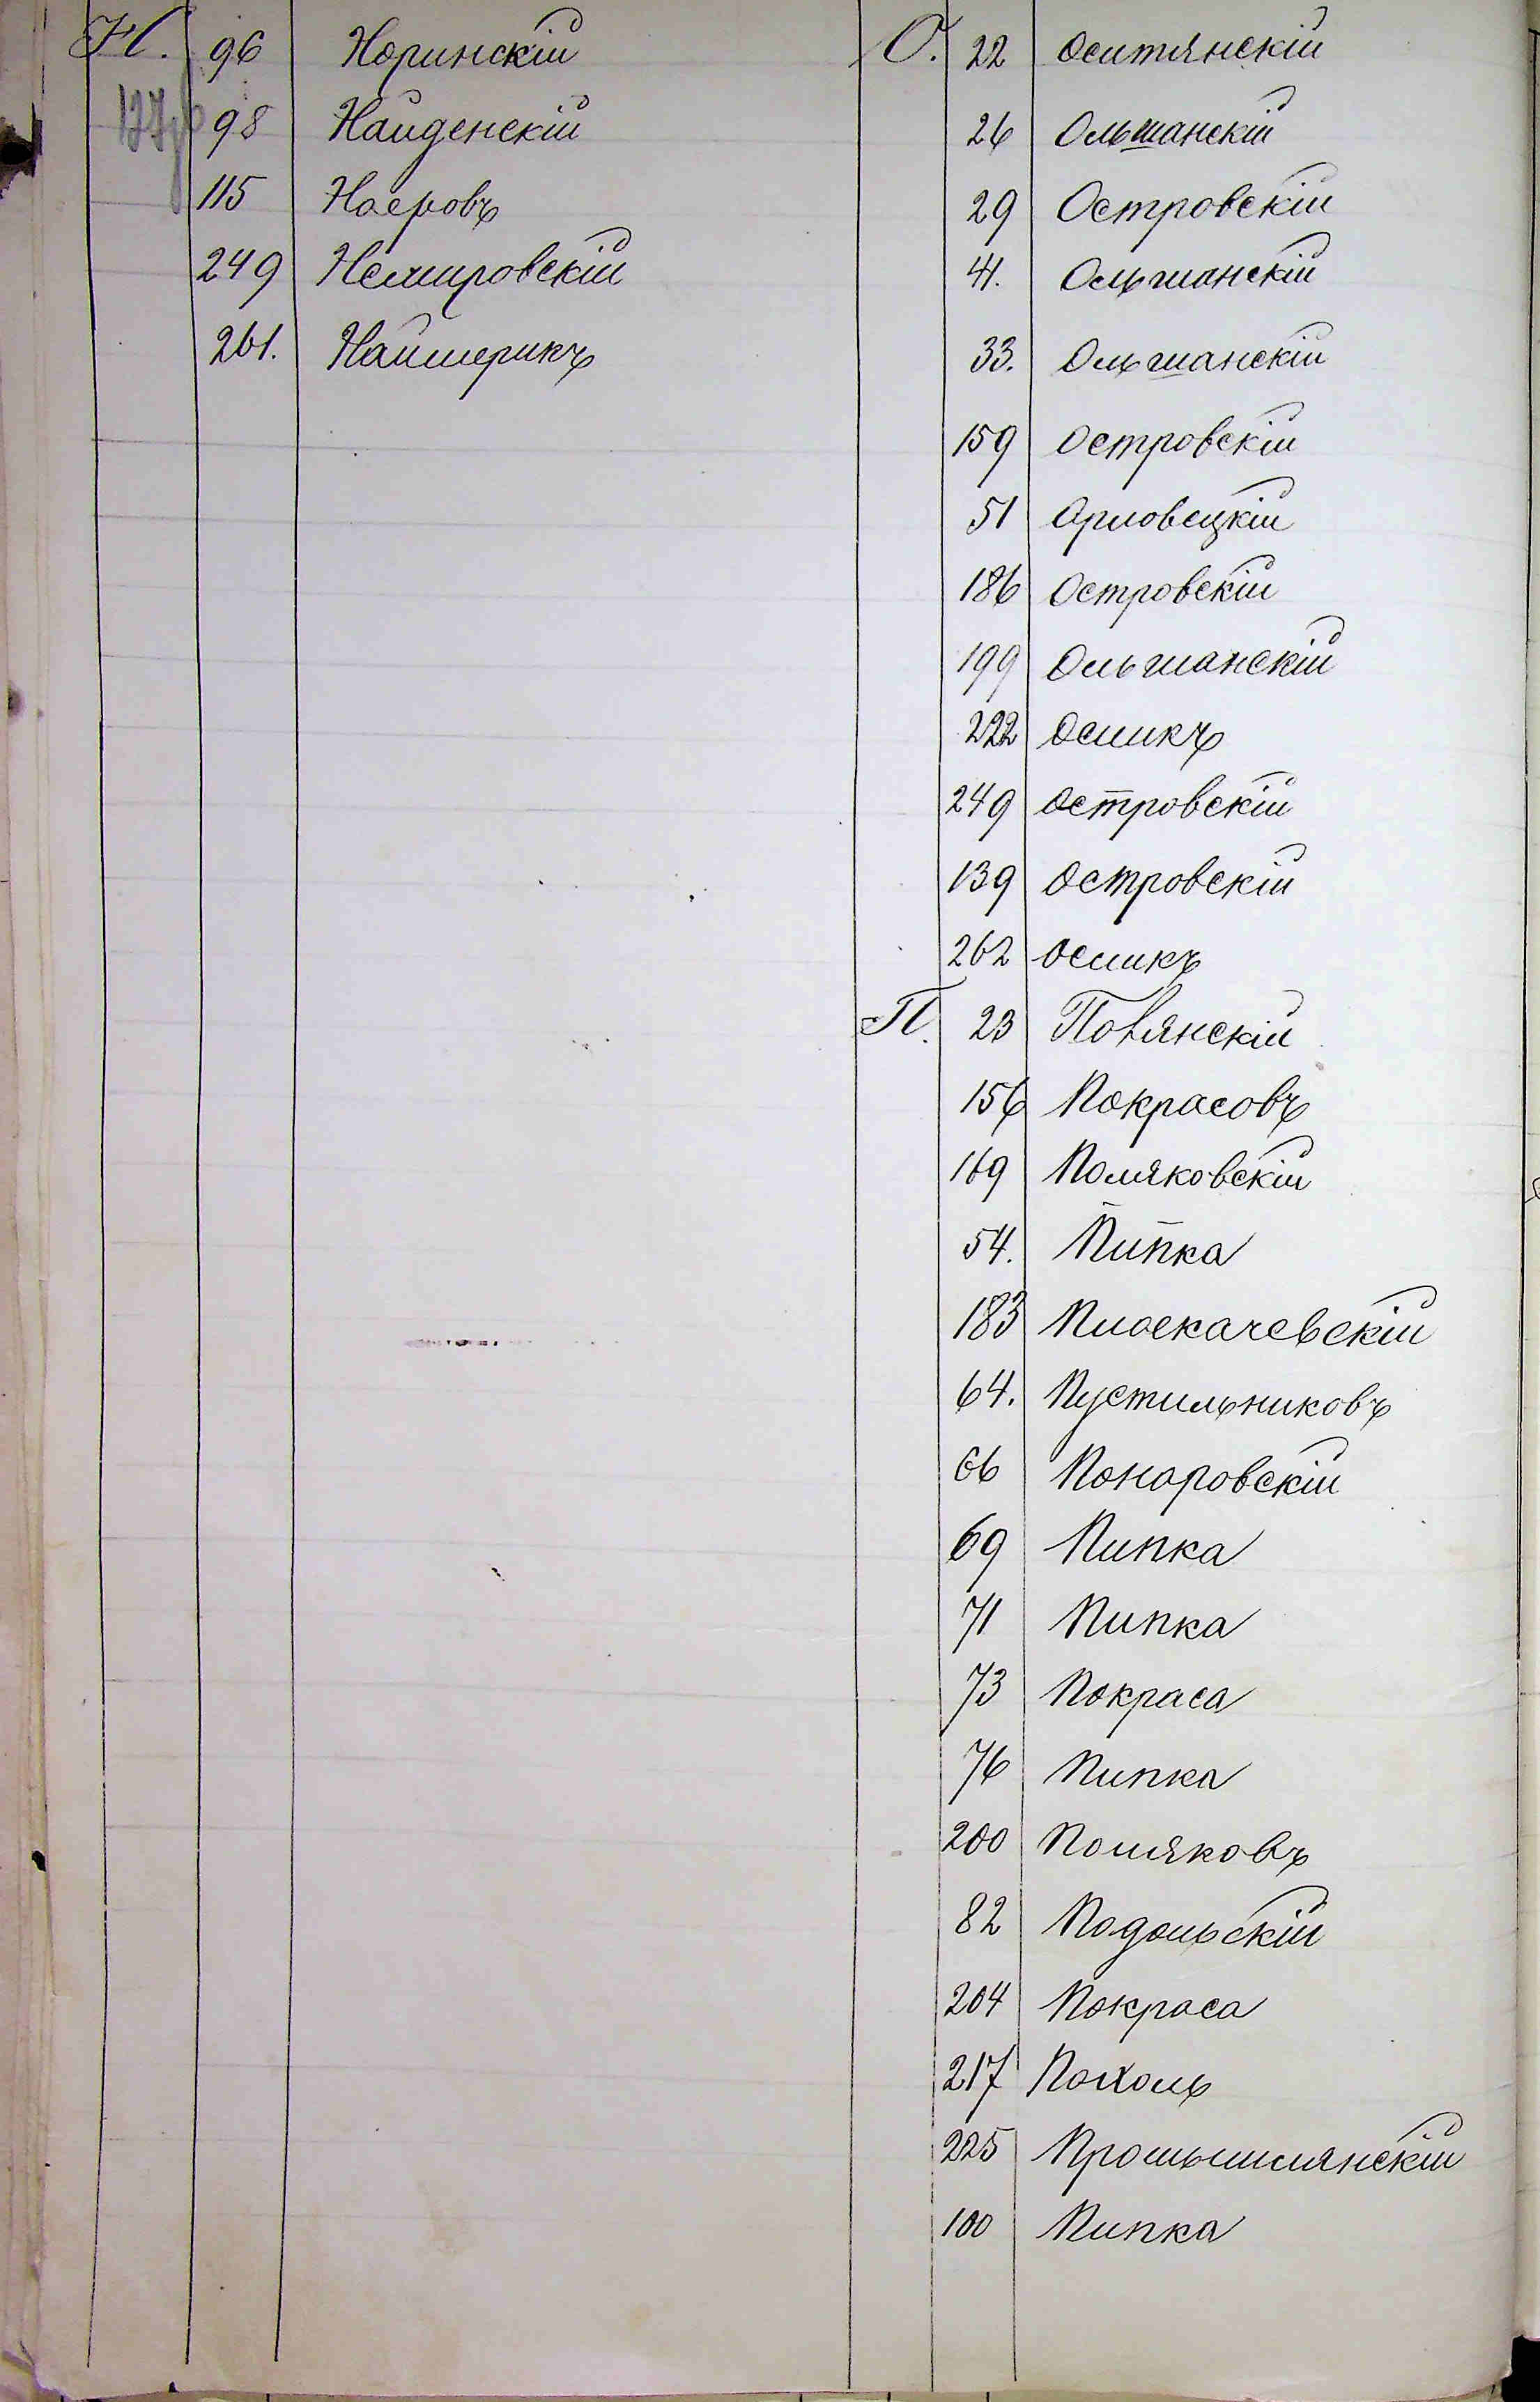 Н. 96 Норинскій
98 Найденскій
115 Насровъ
249 Немировскій
261. Наймерикъ
О. 22 Оситянскій
26 Ольшанскій
29 Островскій
41. Ольшанскій
33. Ольшанскій
159 Островскій
51 Орловецкій
186 Островскій
199 Ольшанскій
222 Осликъ
249 Островскій
139 Островскій
262 Осликъ
П. 23 Повянскій
156 Покрасовъ
169 Поляковскій
54. Пипка
183 Плоскачевскій
64. Пустильниковъ
66 Понаровскій
69 Пипка
71 Пипка
73 Покраса
76 Пипка
200 Поляковъ
82 Подольскій
204 Покраса
217 Похоль
225 Промыслянскій
100 Пипка